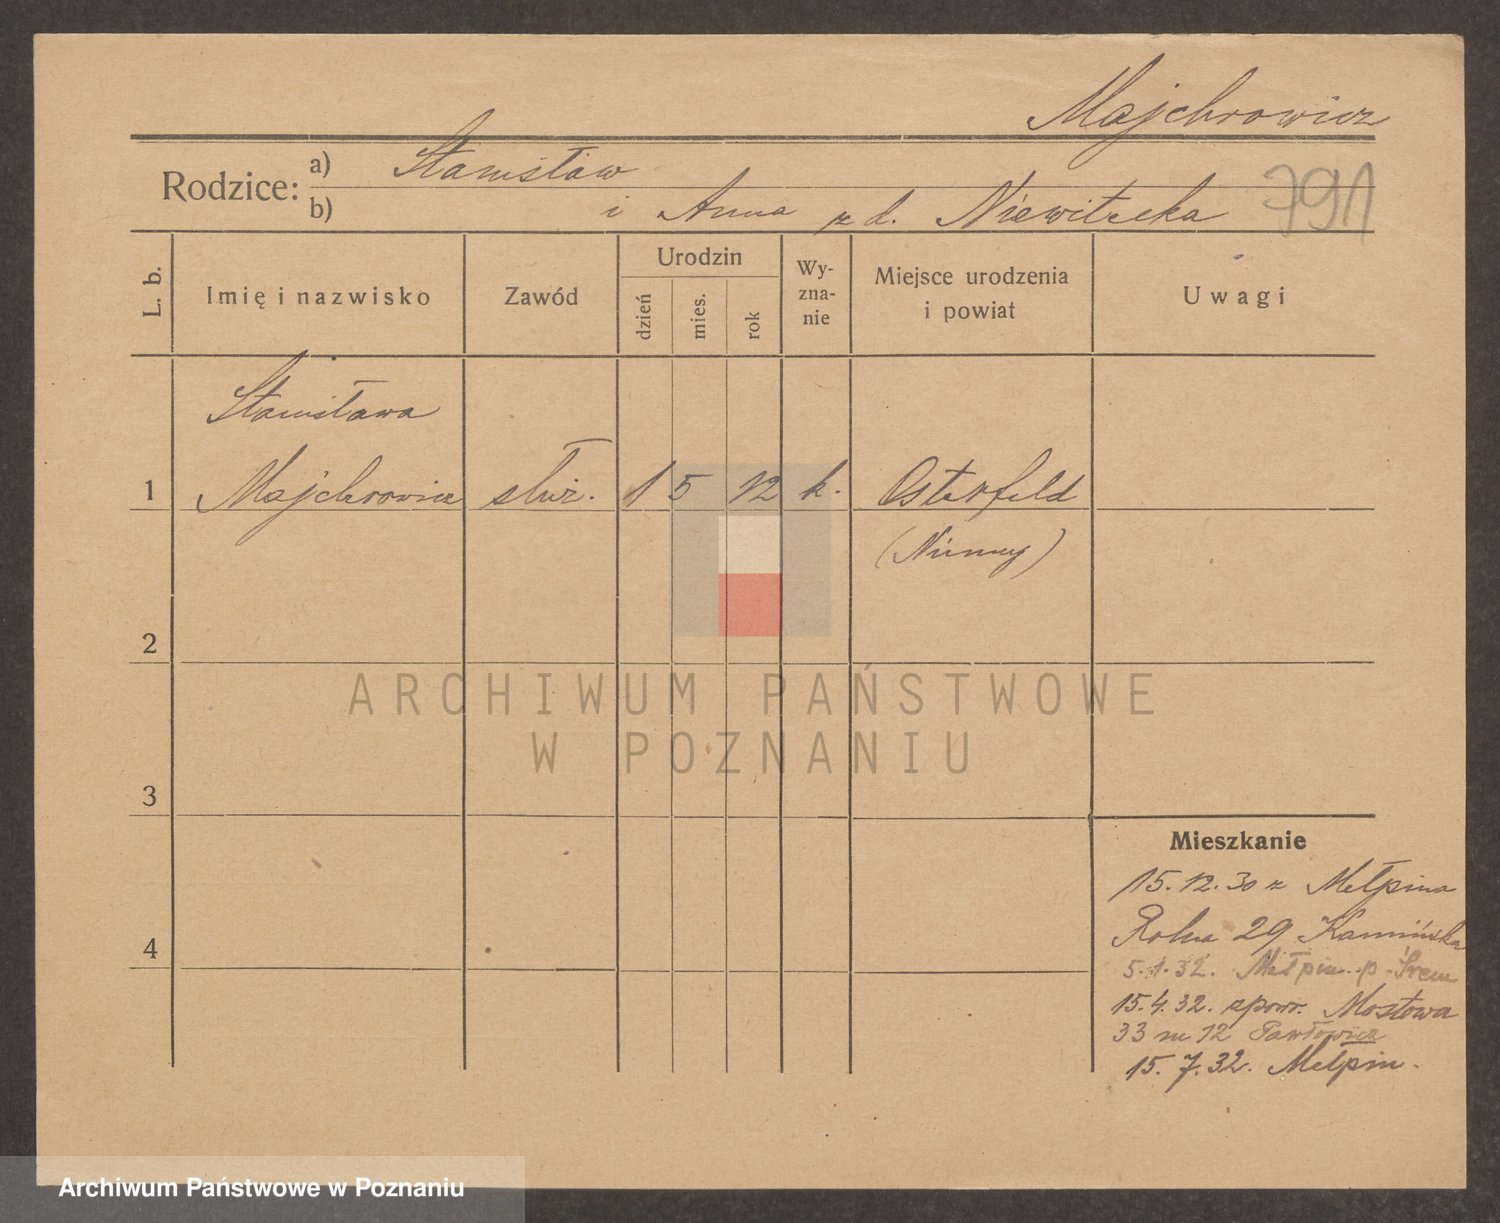 Majchrowicz
Rodzice: a) Stanisław
b) i Anna z d. Niewitecka
791
L. b. Imię i nazwisko Zawód Urodzin Wyzna- nie Miejsce urodzenia i powiat Uwagi
dzień mies. rok
Stanisława
1 Majchrowicz służ. 1 5 12 k. Osterfeld
(Niemcy)
2
3
4
Mieszkanie
15.12.30 z Mełpina
Rolna 29 Kamińska
5.1.32. Mełpin p. Śrem
15.4.32. zpowr. Mostowa
33 m 12 Pawłowicz
15.7.32. Mełpin.
ARCHIWUM PAŃSTWOWE
W POZNANIU
Archiwum Państwowe w Poznaniu